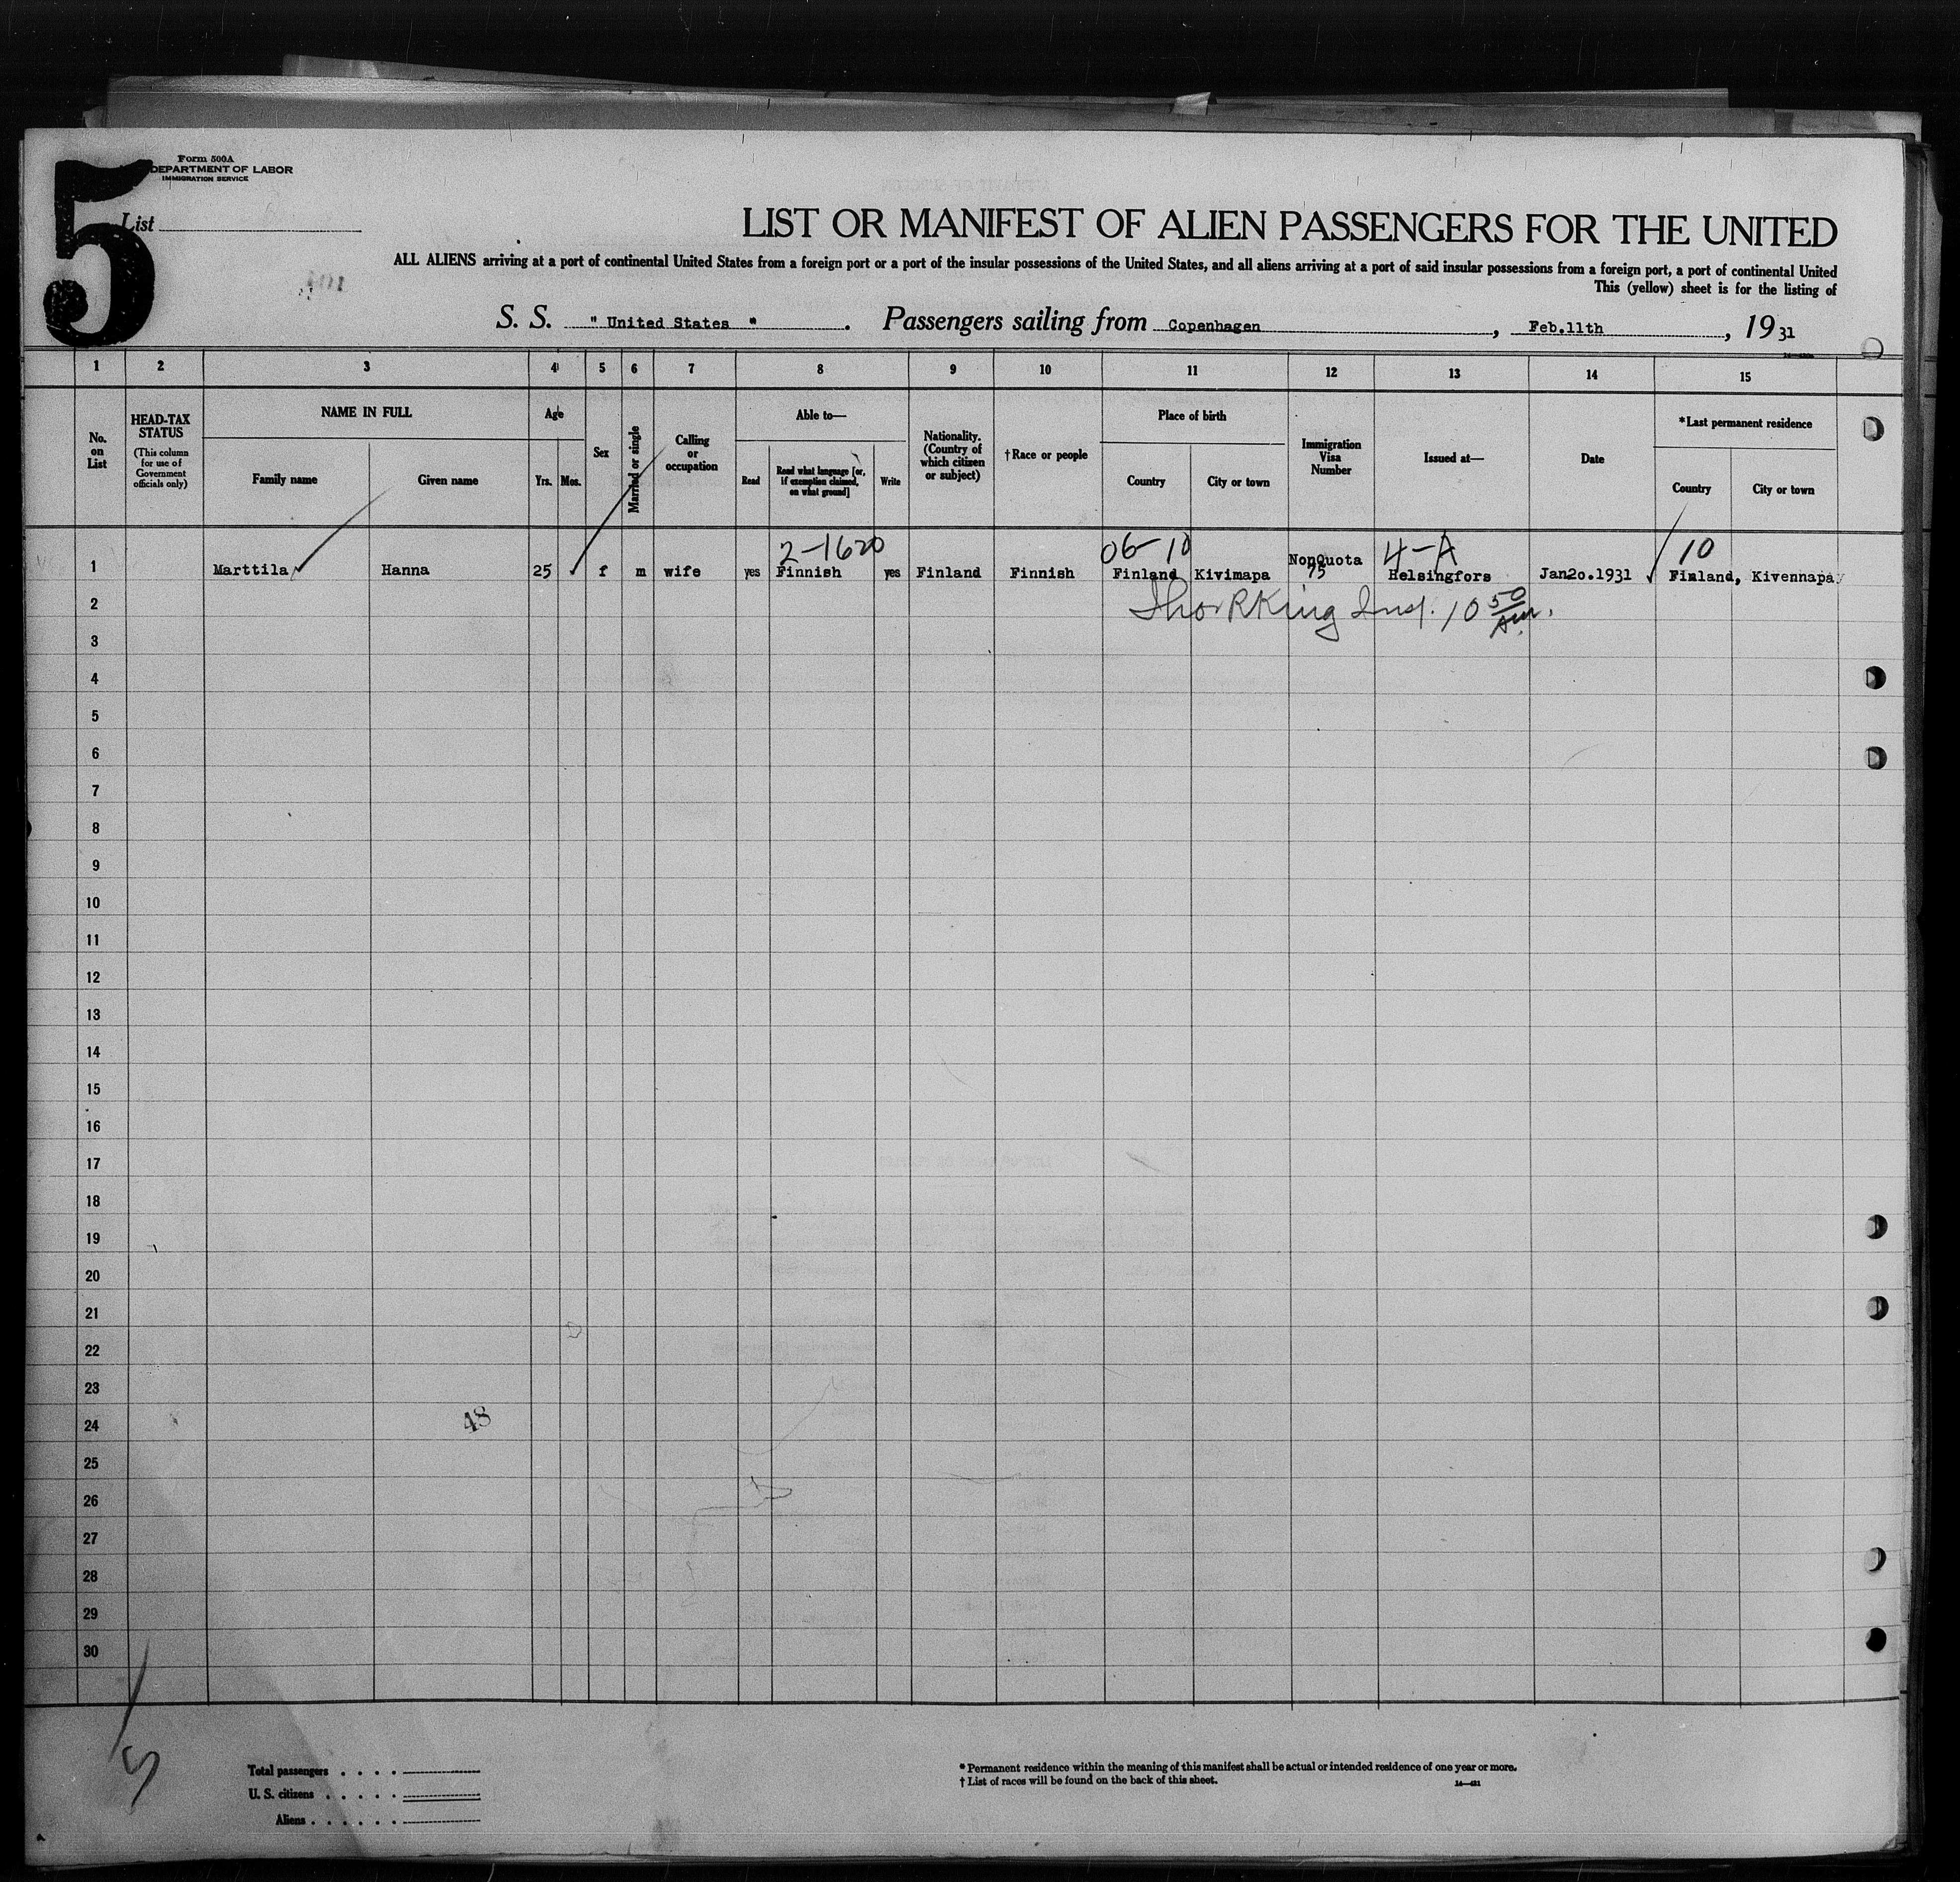 5
Form 500A
DEPARTMENT OF LABOR
IMMIGRATION SERVICE
List
LIST OR MANIFEST OF ALIEN PASSENGERS FOR THE UNITED
ALL ALIENS arriving at a port of continental United States from a foreign port or a port of the insular possessions of the United States, and all aliens arriving at a port of said insular possessions from a foreign port, a port of continental United
This (yellow) sheet is for the listing of
S. S. " United States " . Passengers sailing from Copenhagen , Feb.11th , 1931
1 2 3 4 5 6 7 8 9 10 11 12 13 14 15
No. on List
HEAD-TAX STATUS
(This column for use of Government officials only)
NAME IN FULL
Family name Given name
Age
Yrs. Mos.
Sex
Married or single
Calling or occupation
Able to—
Read
Read what language [or, if exemption claimed, on what ground]
Write
Nationality. (Country of which citizen or subject)
†Race or people
Place of birth
Country City or town
Immigration Visa Number
Issued at—
Date
*Last permanent residence
Country City or town
2-1620 06-10 4-A 10
1 Marttila Hanna 25 f m wife yes Finnish yes Finland Finnish Finland Kivimapa NonQuota 75 Helsingfors Jan2o.1931 Finland, Kivennapa
2 10 50 AM.
3
4
5
6
7
8
9
10
11
12
13
14
15
16
17
18
19
20
21
22
23
24
48
25
26
27
28
29
30
Total passengers . . . .
U. S. citizens . . . . .
Aliens . . . . . .
* Permanent residence within the meaning of this manifest shall be actual or intended residence of one year or more.
† List of races will be found on the back of this sheet.